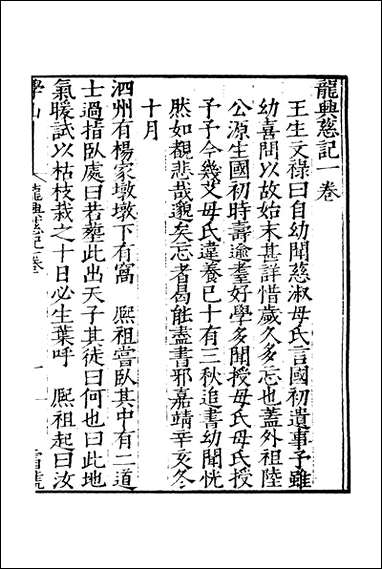 龍興慈記一卷
王生文祿曰自幼聞慈淑母氏言國初遺事予雖
幼喜問以故始末甚詳惜歲久多忘也蓋外祖陸
公源生國初時壽逾耄好學多聞授母氏母氏授
予予今幾艾母氏違養已十有三秋追書幼聞恍
然如覩悲哉邈矣忘者曷能盡書邪嘉靖辛亥冬
十月
泗州有楊家墩墩下有窩 熈祖嘗臥其中有二道
士過指臥處曰若塟此出天子其徒曰何也曰此地
氣暖試以枯枝栽之十日必生葉呼 熈祖起曰汝
龍興慈記卷 一